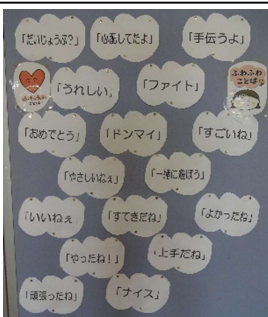 「だいじょうぶ?」
「心配してたよ」
「手伝うよ」
「うれしい」
「ファイト」
ふわふわ
ことば
「おめでとう」
「ドンマイ」
「すごいね」
「やさしいなぁ」
「一緒に遊ぼう」
「いいねぇ」
「すてきだね」
「よかったね」
「やったね!」
「上手だね」
「頑張ったね」
「ナイス」